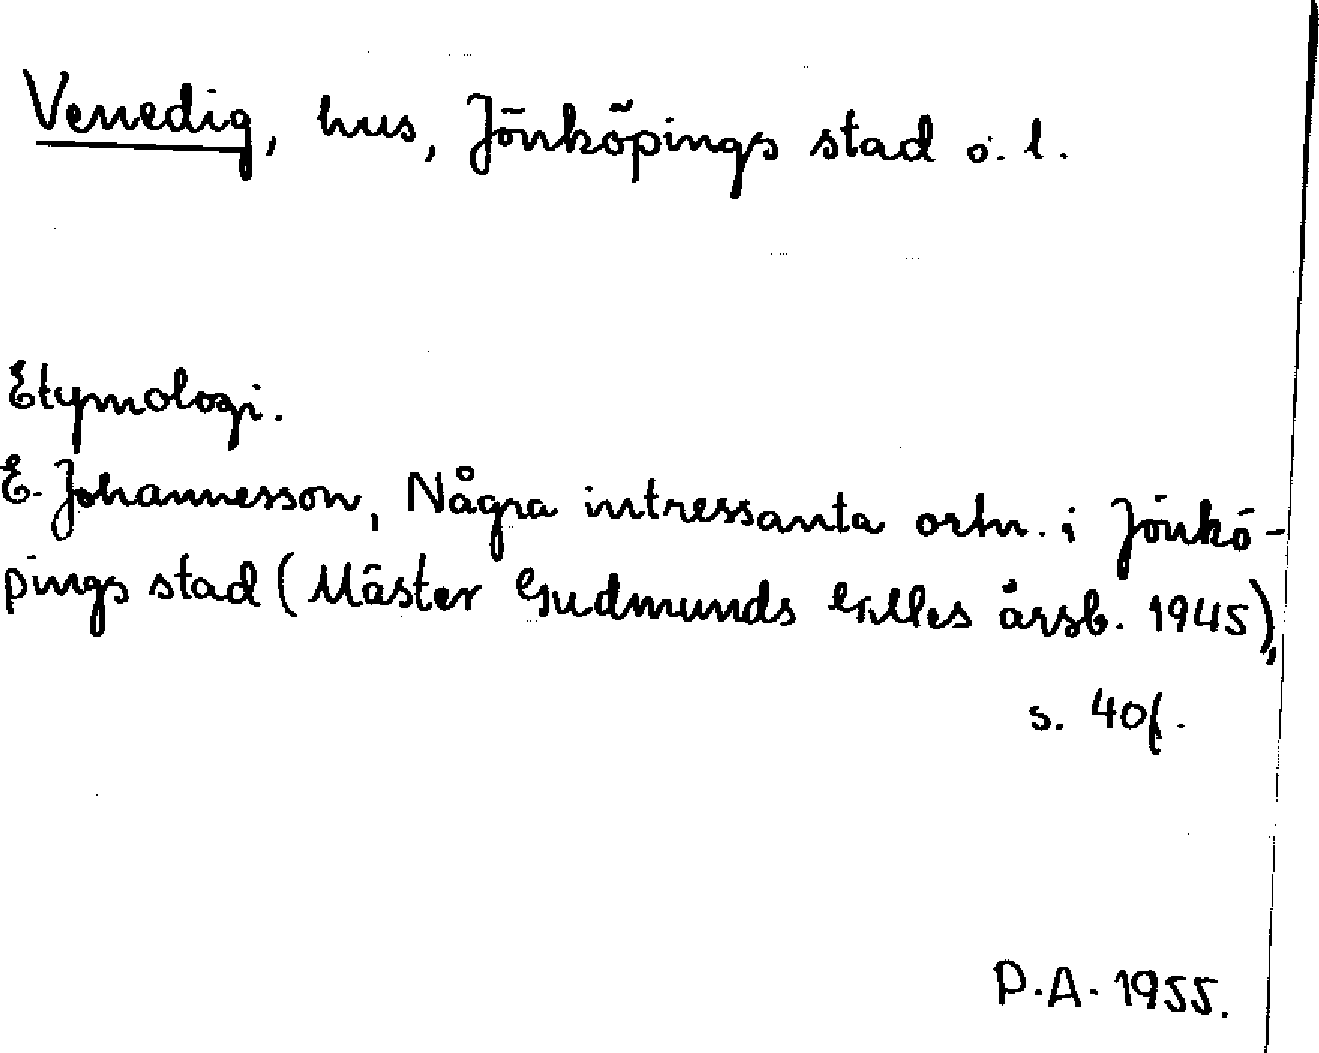 Venedig, hus, Jönköpings stad o. l.
Etymologi.
E. Johannesson, Några intressanta ortn. i Jönkö-
pings stad (Mäster Gudmunds Gilles årsb. 1945),
s. 40f.
P.A. 1955.